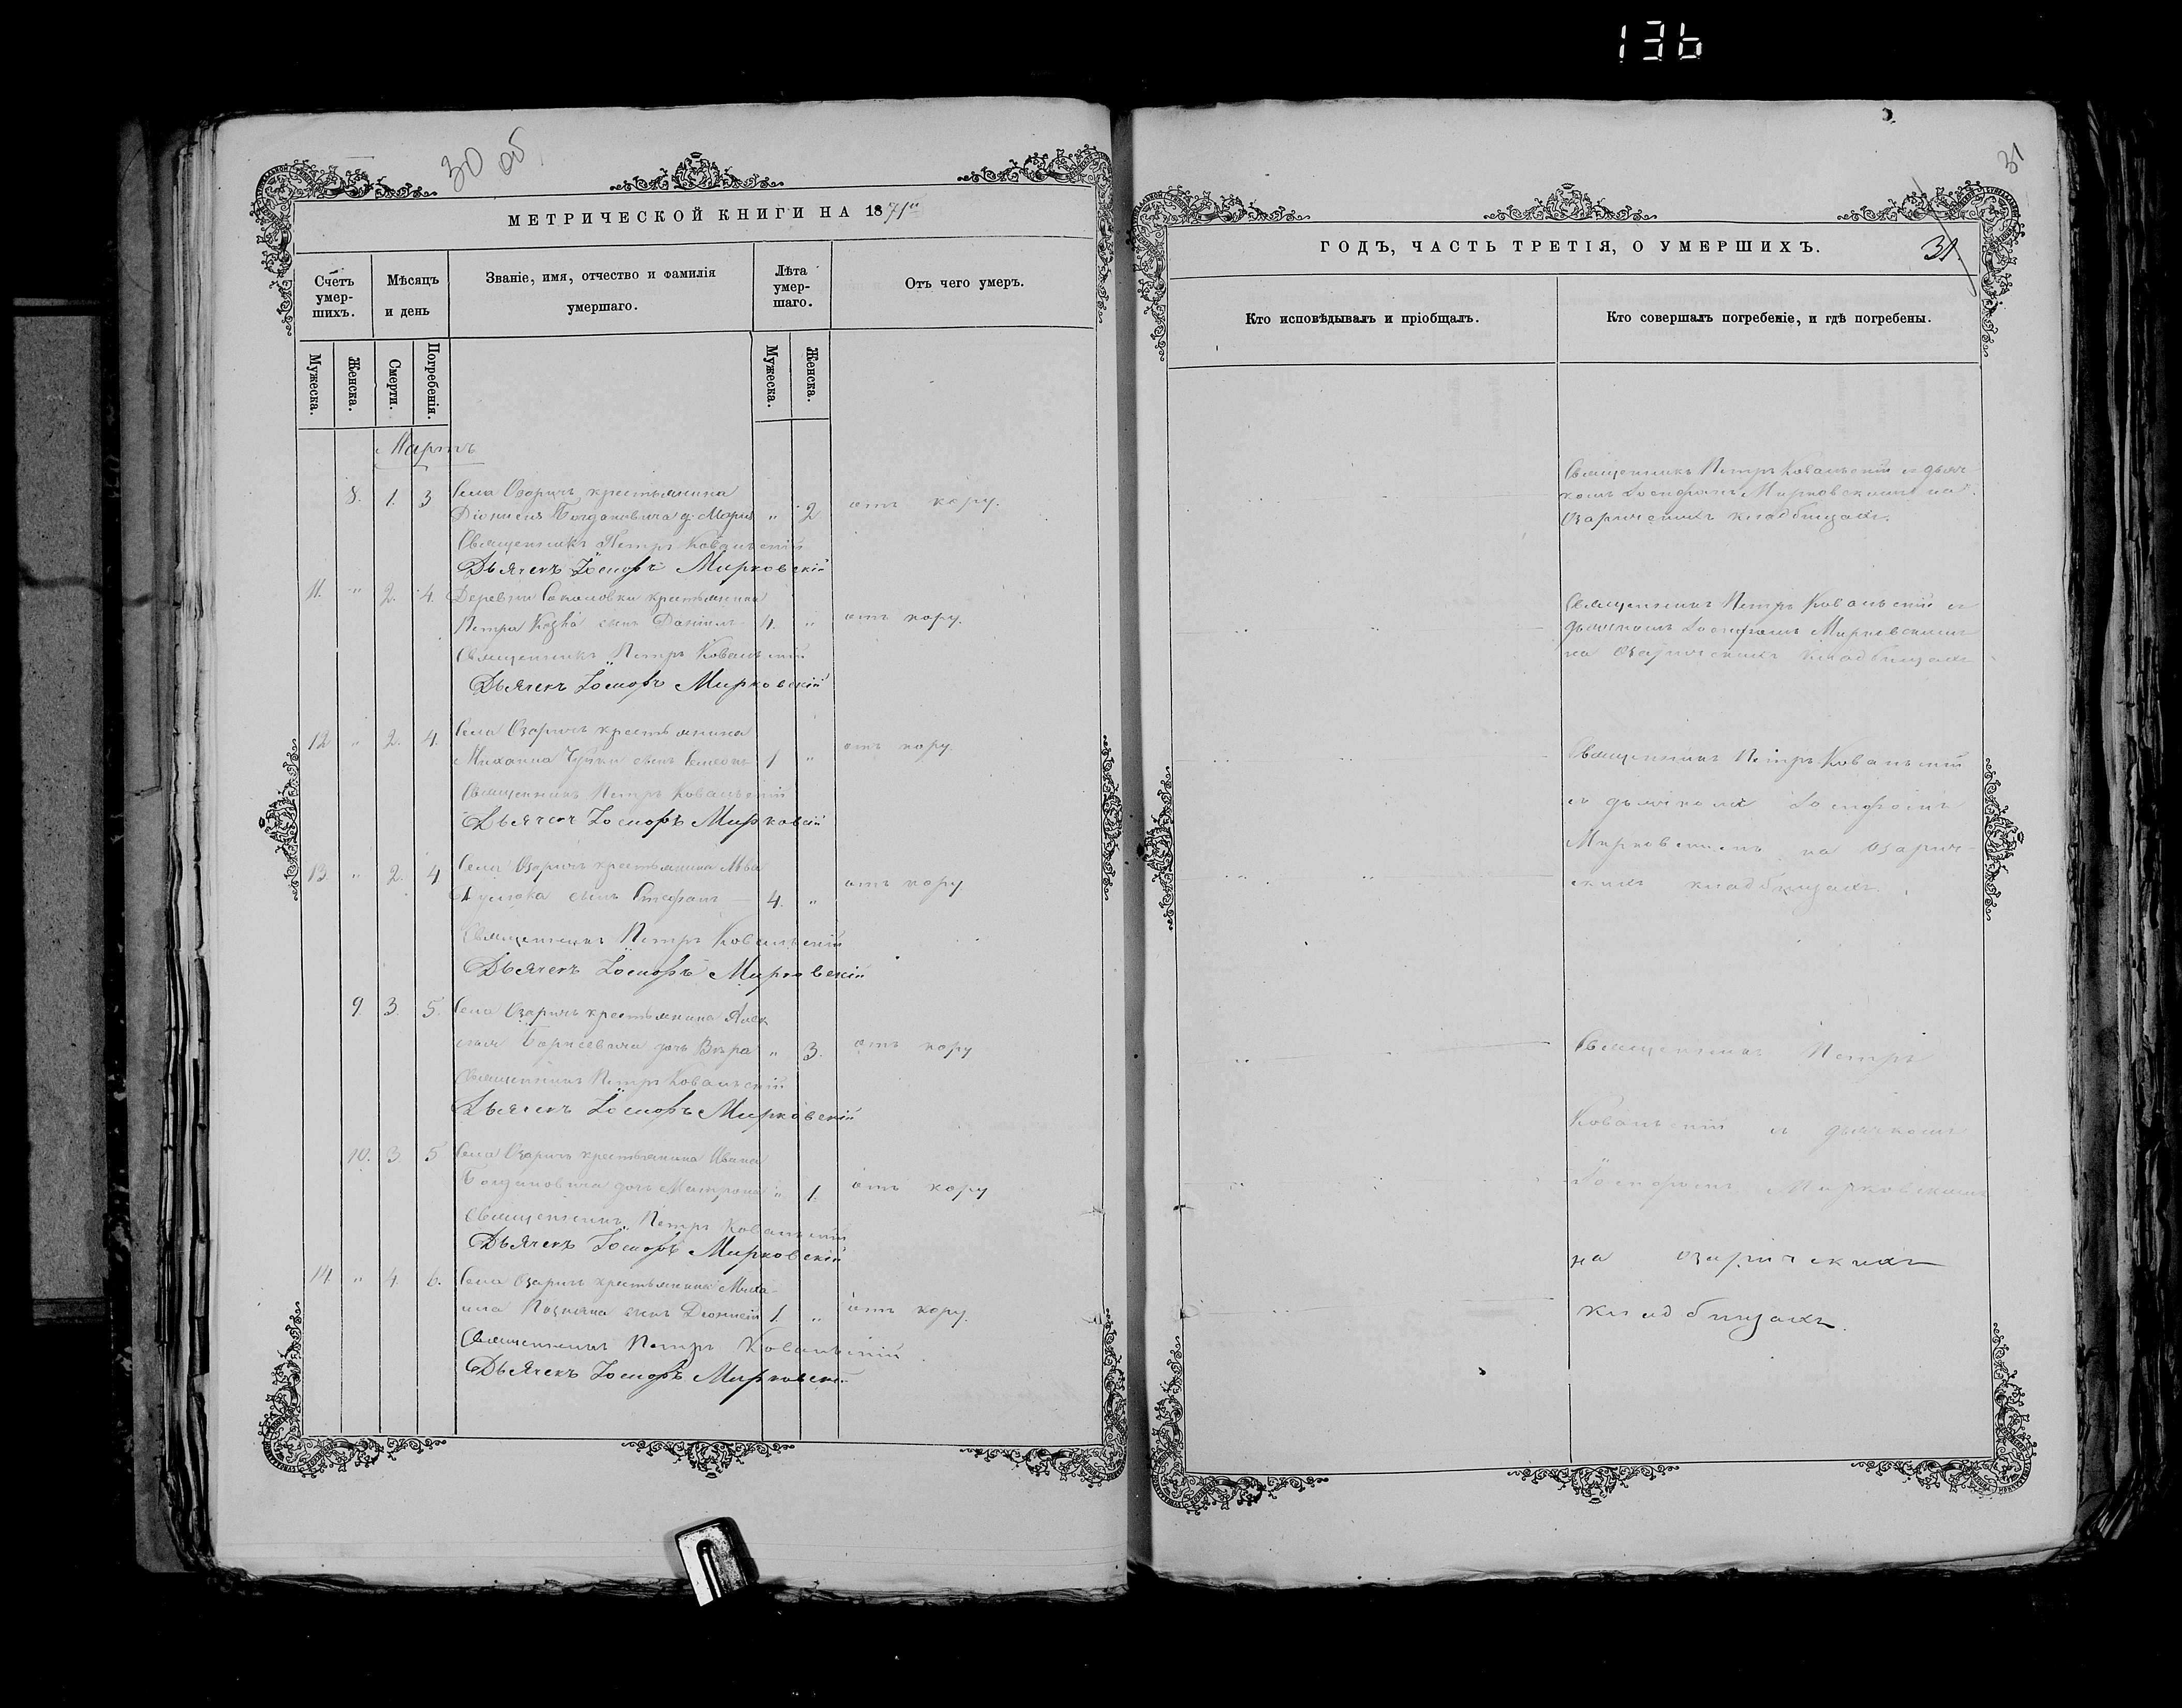 136
30 об
МЕТРИЧЕСКОЙ КНИГИ НА 1871й
Счетъ умер-шихъ.
Мѣсяцъ и день
Званіе, имя, отчество и фамилія умершаго.
Лѣта умер-шаго.
Отъ чего умеръ.
Мужеска.
Женска.
Смерти.
Погребенія.
Мужеска.
Женска.
Мартъ
8. 1. 3 Села Озаричъ крестьянина
Діонисія Богдановича д. Марія " 2 отъ кору.
Священникъ Петръ Ковальскій
Дьячекъ Іосифъ Мирковскій
11. " 2. 4. Деревни Соколовки крестьянина
Петра сынъ Даніилъ 4. " отъ кору.
Священникъ Петръ Ковальскій
Дьячекъ Іосифъ Мирковскій
12 " 2. 4. Села Озаричъ крестьянина
Михаила сынъ Симеонъ 1 " отъ кору.
Священникъ Петръ Ковальскій
Дьячекъ Іосифъ Мирковскій
13 " 2. 4 Села Озаричъ крестьянина
сынъ Стефанъ 4. " отъ кору
Священникъ Петръ Ковальскій
Дьячекъ Іосифъ Мирковскій
9. 3. 5. Села Озаричъ крестьянина Алек
дочь Вѣра " 3. отъ кору
Священникъ Петръ Ковальскій
Дьячекъ Іосифъ Мирковскій
10. 3 5 Села Озаричъ крестьянина Ивана
Богдановича дочь Матрона " 1. отъ кору
Священникъ Петръ Ковальскій
Дьячекъ Іосифъ Мирковскій
14. " 4. 6. Села Озаричъ крестьянина Миха-
ила сынъ Діонисій 1. " отъ кору.
Священникъ Петръ Ковальскій
Дьячекъ Іосифъ Мирковскій
31
ГОДЪ, ЧАСТЬ ТРЕТІЯ, О УМЕРШИХЪ.
31
Кто исповѣдывалъ и пріобщалъ.
Кто совершалъ погребеніе, и гдѣ погребены.
Священникъ Петръ Ковальскій съ дьяч-
комъ Іосифомъ Мирковскимъ на
Озаричскихъ кладбищахъ.
Священникъ Петръ Ковальскій съ
дьячкомъ Іосифомъ Мирковскимъ
на Озаричскихъ кладбищахъ
Священникъ Петръ Ковальскій
съ дьячкомъ Іосифомъ
Мирковскимъ на Озарич-
скихъ кладбищахъ.
Священникъ Петръ
Ковальскій съ дьячкомъ
Іосифомъ Мирковскимъ
на Озаричскихъ
кладбищахъ.